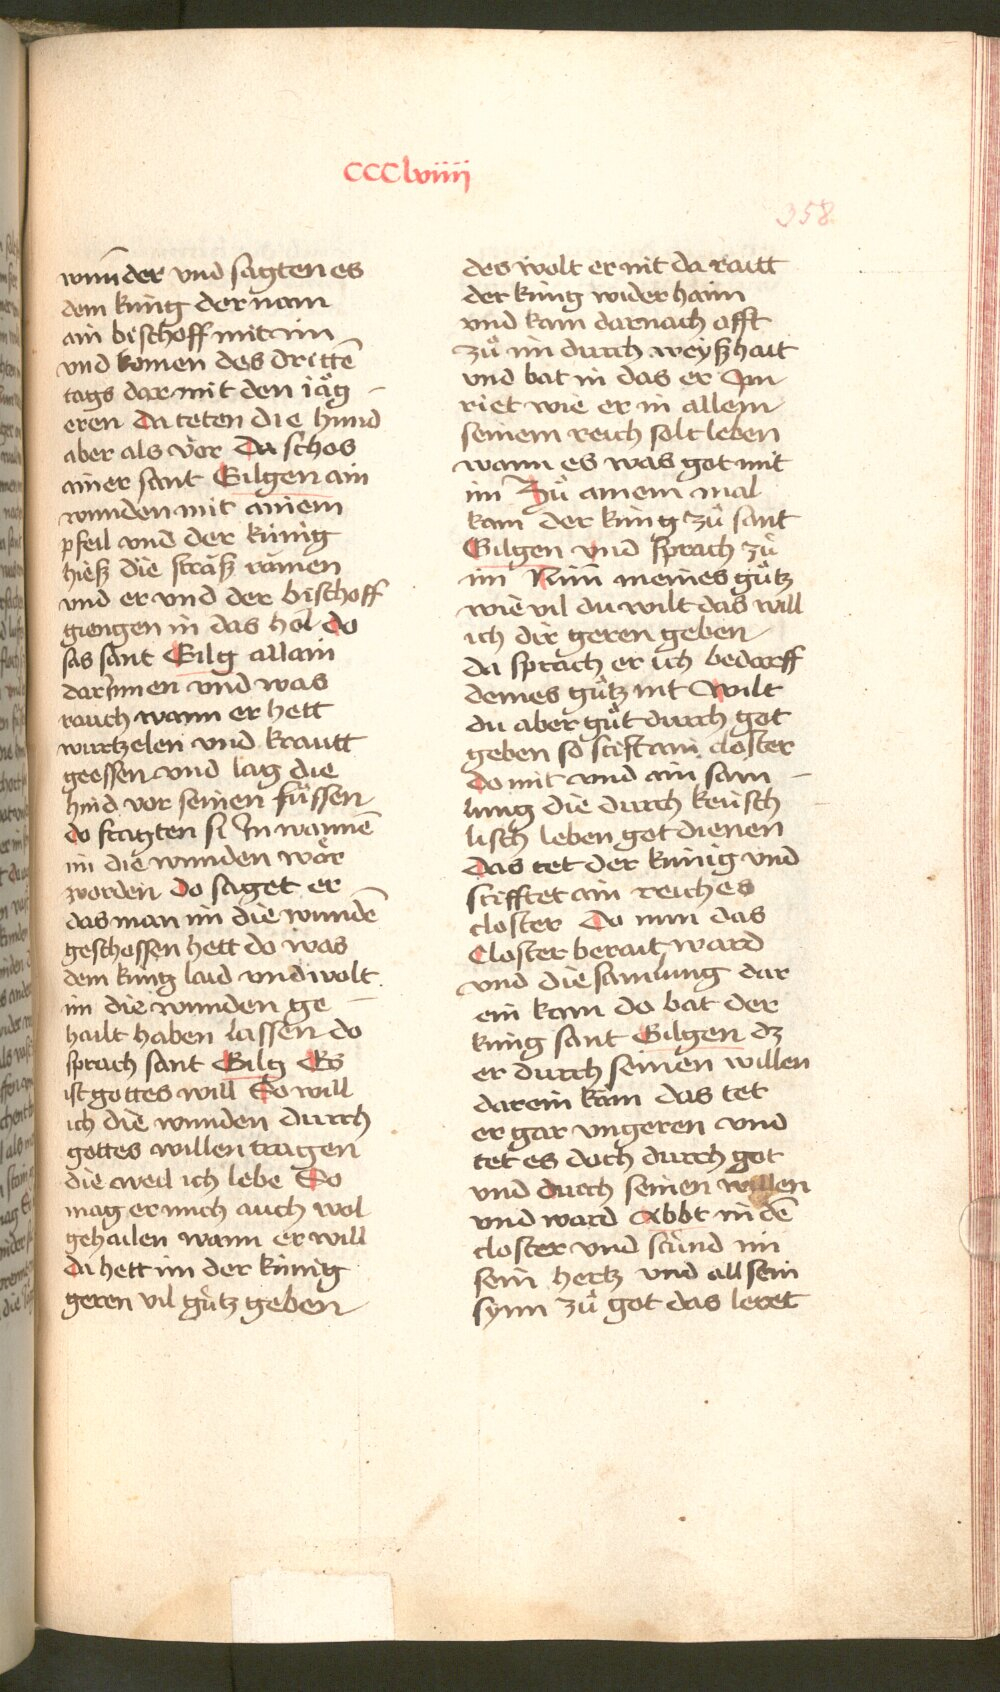 CCClviiii
358
wūnder vnd sagten es
dem kung der nam
ain bischoff mit im
vnd komen des drittē
tags dar mit den iäg
eren Da teten die hund
aber als vor Da schos
ainer sant Gilgen ain
wunden mit ainem
pfeil vnd der künig
hiesz die strasz ramen
vnd er vnd der bischoff
giengen in das hol do
sas sant Gilg allain
darinnen vnd was
rauch wann er hett
wurtzelen vnd krautt
geessen vnd lag die
hind vor seinen füssen
do fragten si In wannē
im die wunden wär
worden Do saget er
das man im die wundē
geschossen hett do was
dem kung laid vnd wolt
im die wunden ge
hailt haben lassen do
sprach sant Gilg Es
ist gottes will So will
ich die wunden durch
gottes willen tragen
die weil ich lebe So
mag er mich auch wol
gehailen wann er will
da hett im der künig
geren vil gůtz geben
des wolt er nit da raitt
der kung wider haim
vnd kam darnach offt
zů im durch weyszhait
vnd bat in das er Im
riet wie er in allem
seinem reich solt leben
wann es was got mit
im Zů ainem mal
kam der kung zů sant
Gilgen vnd sprach zů
im Nim meines gůtz
wie vil du wilt das will
ich dir geren geben
da sprach er ich bedorff
deines gůtz nit Wilt
du aber gůt durch got
geben so stift ain closter
Do mit vnd ain sam
lung die durch keusch
lisch leben got dienen
Das tet der künig vnd
stifftet ain reiches
closter Do nun das
Closter berait ward
vnd die samlung dar
ein kam do bat der
kung sant Gilgen dz
er durch seinen willen
darein kam das tet
er gar vngeren vnd
tet es doch durch got
vnd durch seinen willen
vnd ward Abbt in dē
closter vnd stund im
sein hertz vnd all sein
synn zů got das leret